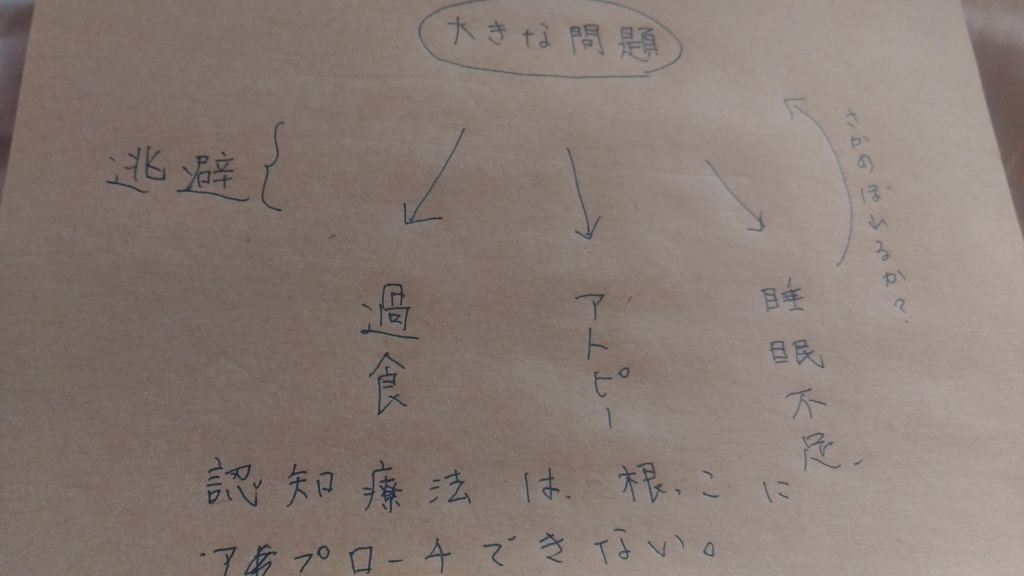 大きな問題
逃避
さかのぼれるか?
過食
アトピー
睡眠不足
認知療法は根っこに
アプローチできない。